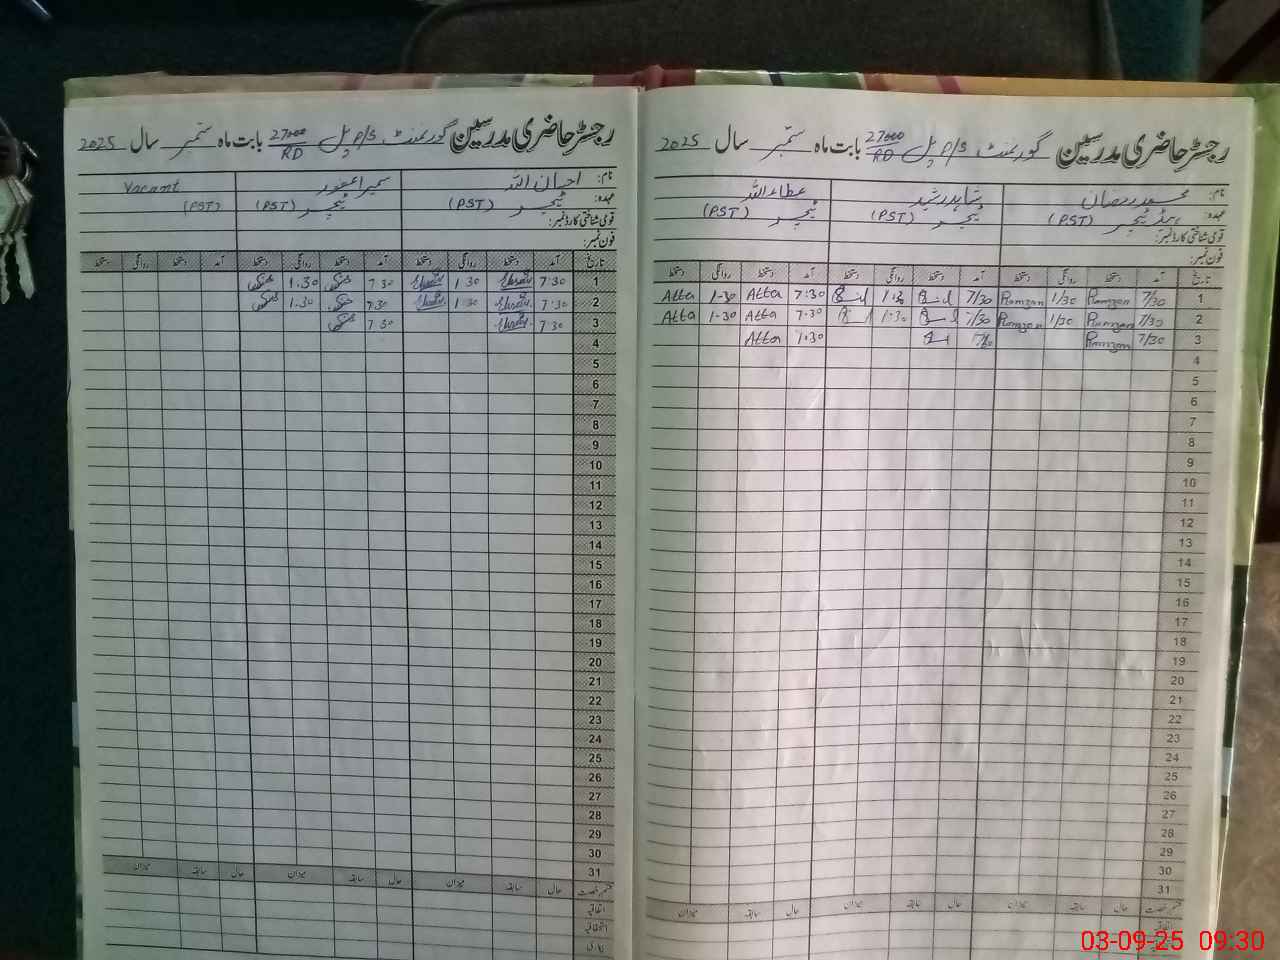 رجسٹر حاضری مدرسین گورنمنٹ P/S پل 27000/RD بابت ماہ ستمبر سال 2025
نام: محمد رمضان شاہد رشید عطاء اللہ
عہدہ: ہیڈ ٹیچر (PST) ٹیچر (PST) ٹیچر (PST)
قومی شناختی کارڈ نمبر:
فون نمبر:
تاریخ آمد دستخط روانگی دستخط آمد دستخط روانگی دستخط آمد دستخط روانگی دستخط
1 7/30 Ramzan 1/30 Ramzan 7/30 1:30 7:30 Atta 1-30 Atta
2 7/30 Ramzan 1/30 Ramzan 7/30 1:30 7:30 Atta 1-30 Atta
3 7/30 Ramzan 7:30 Atta
4
5
6
7
8
9
10
11
12
13
14
15
16
17
18
19
20
21
22
23
24
25
26
27
28
29
30
31
قسم رخصت حال سابقہ میزان حال سابقہ میزان حال سابقہ میزان
اتفاقیہ
رجسٹر حاضری مدرسین گورنمنٹ P/S پل 27000/RD بابت ماہ ستمبر سال 2025
نام: احسان اللہ سمیرا غفور Vacant
عہدہ: ٹیچر (PST) ٹیچر (PST) (PST)
قومی شناختی کارڈ نمبر:
فون نمبر:
تاریخ آمد دستخط روانگی دستخط آمد دستخط روانگی دستخط آمد دستخط روانگی دستخط
1 7:30 1:30 7:30 1:30
2 7:30 1:30 7:30 1:30
3 7:30 7:30
4
5
6
7
8
9
10
11
12
13
14
15
16
17
18
19
20
21
22
23
24
25
26
27
28
29
30
31
قسم رخصت حال سابقہ میزان حال سابقہ میزان حال سابقہ میزان
اتفاقیہ
استحقاقیہ
بیماری
03-09-25 09:30